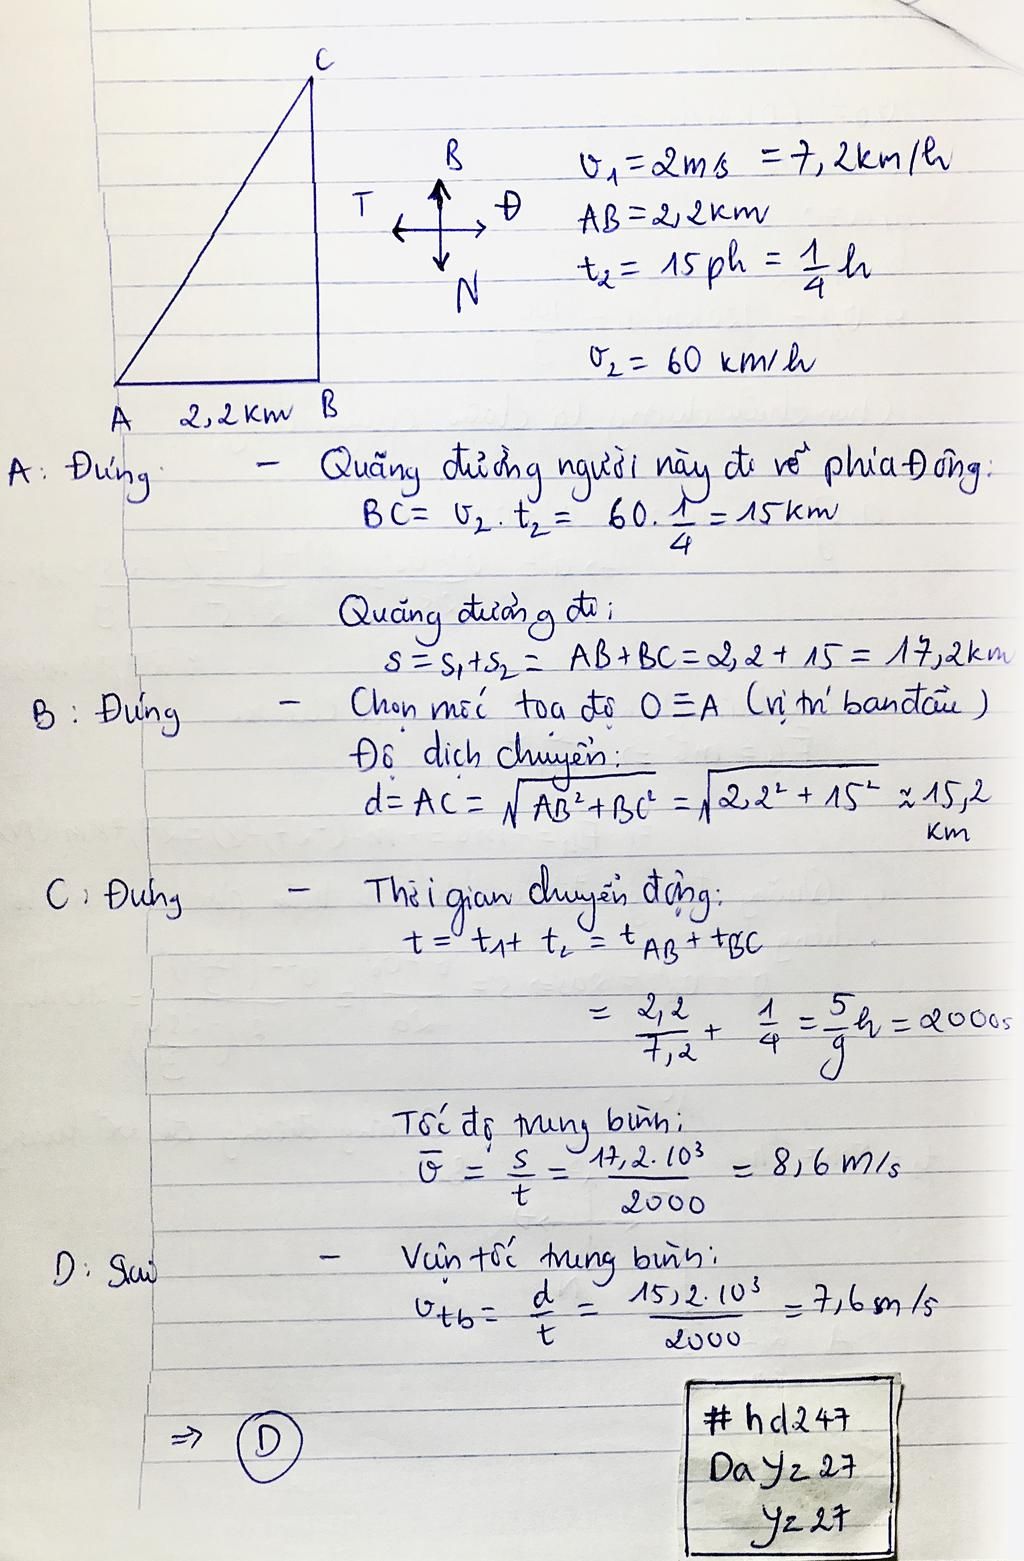 C
B
T Đ
N
A 2,2km B
v₁ = 2m/s = 7,2km/h
AB = 2,2km
t₂ = 15ph = 1/4 h
v₂ = 60 km/h
A: Đúng - Quãng đường người này đi về phía Đông:
BC = v₂ . t₂ = 60. 1/4 = 15km
Quãng đường đi:
s = s₁+s₂ = AB+BC = 2,2 + 15 = 17,2km
B: Đúng - Chọn mốc toạ độ O≡A (vị trí ban đầu)
Độ dịch chuyển:
d = AC = √(AB²+BC²) = √(2,2² + 15²) ≈ 15,2
km
C: Đúng - Thời gian chuyển động:
t = t₁ + t₂ = t_AB + t_BC
= 2,2/7,2 + 1/4 = 5/9 h = 2000s
Tốc độ trung bình:
v̄ = s/t = 17,2.10³/2000 = 8,6 m/s
D: Sai - Vận tốc trung bình:
v_tb = d/t = 15,2.10³/2000 = 7,6 m/s
⇒ D
#hd247
Dayz27
yz27